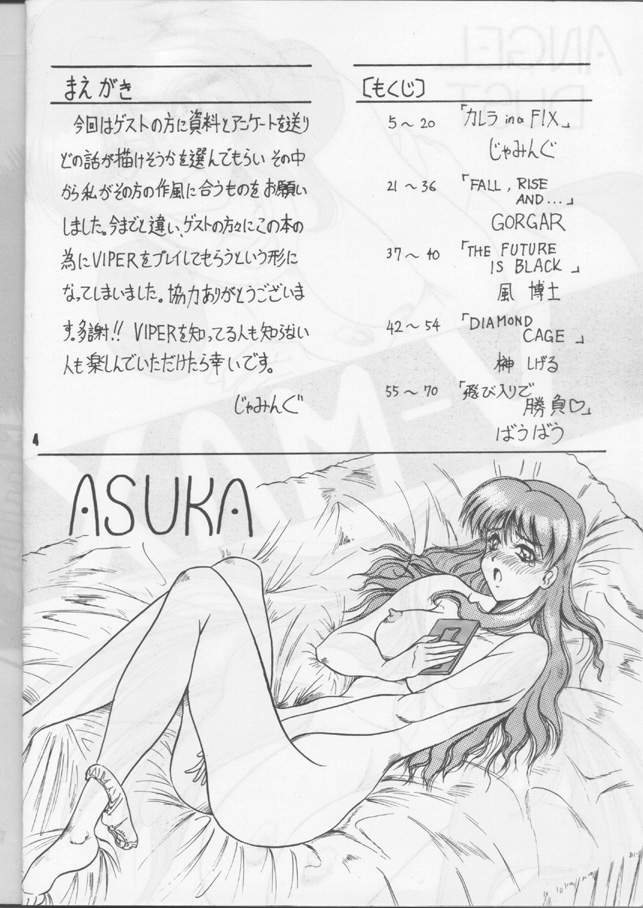 まえがき
今回はゲストの方に資料とアンケートを送り
どの話が描けそうかを選んでもらい その中
から私がその方の作風に合うものをお願い
しました。今までと違い、ゲストの方々にこの本の
為にVIPERをプレイしてもらうという形に
なってしまいました。協力ありがとうございま
す。多謝!! VIPERを知ってる人も知らない
人も楽しんでいただけたら幸いです。
じゃみんぐ
〔もくじ〕
5〜20 「カレラ in a FIX」
じゃみんぐ
21〜36 「FALL, RISE
AND...」
GORGAR
37〜40 「THE FUTURE
IS BLACK」
風 博士
42〜54 「DIAMOND
CAGE」
榊 しげる
55〜70 「飛び入りで
勝負♡」
ばうばう
4
ASUKA
ANGEL
DUST
V-MAX